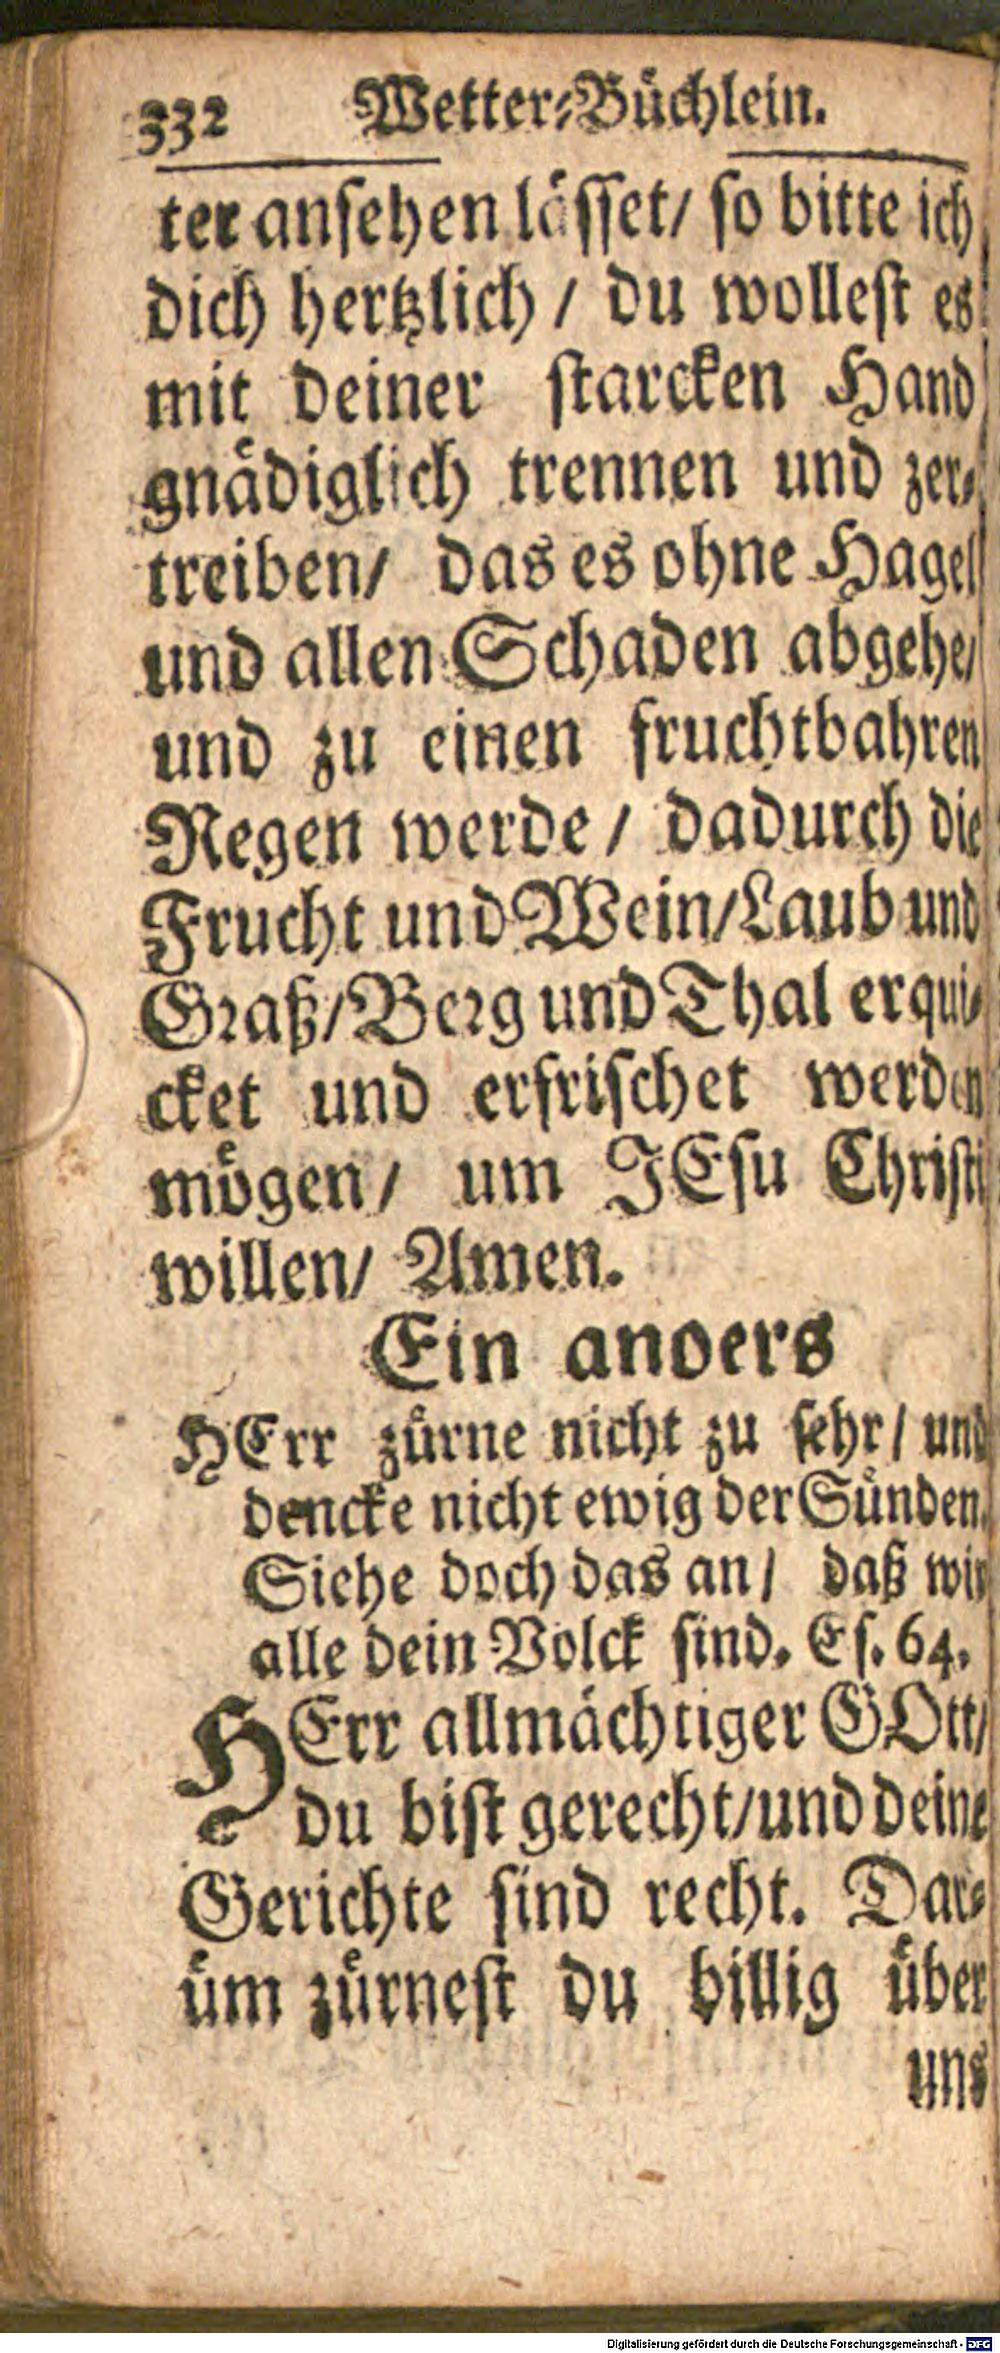 332 Wetter-Büchlein.
ter ansehen lässet/ so bitte ich
dich hertzlich / du wollest es
mit deiner starcken Hand
gnädiglich trennen und zer-
treiben/ das es ohne Hagel
und allen Schaden abgehe/
und zu einen fruchtbahren
Regen werde / dadurch die
Frucht und Wein/Laub und
Graß/Berg und Thal erqui-
cket und erfrischet werden
mögen/ um JEsu Christi
willen/ Amen.
Ein anders
HErr zürne nicht zu sehr / und
dencke nicht ewig der Sünden.
Siehe doch das an / daß wir
alle dein Volck sind. Es. 64.
HErr allmächtiger GOtt/
du bist gerecht/und deine
Gerichte sind recht. Dar-
üm zürnest du billig über
uns
Digitalisierung gefördert durch die Deutsche Forschungsgemeinschaft - DFG